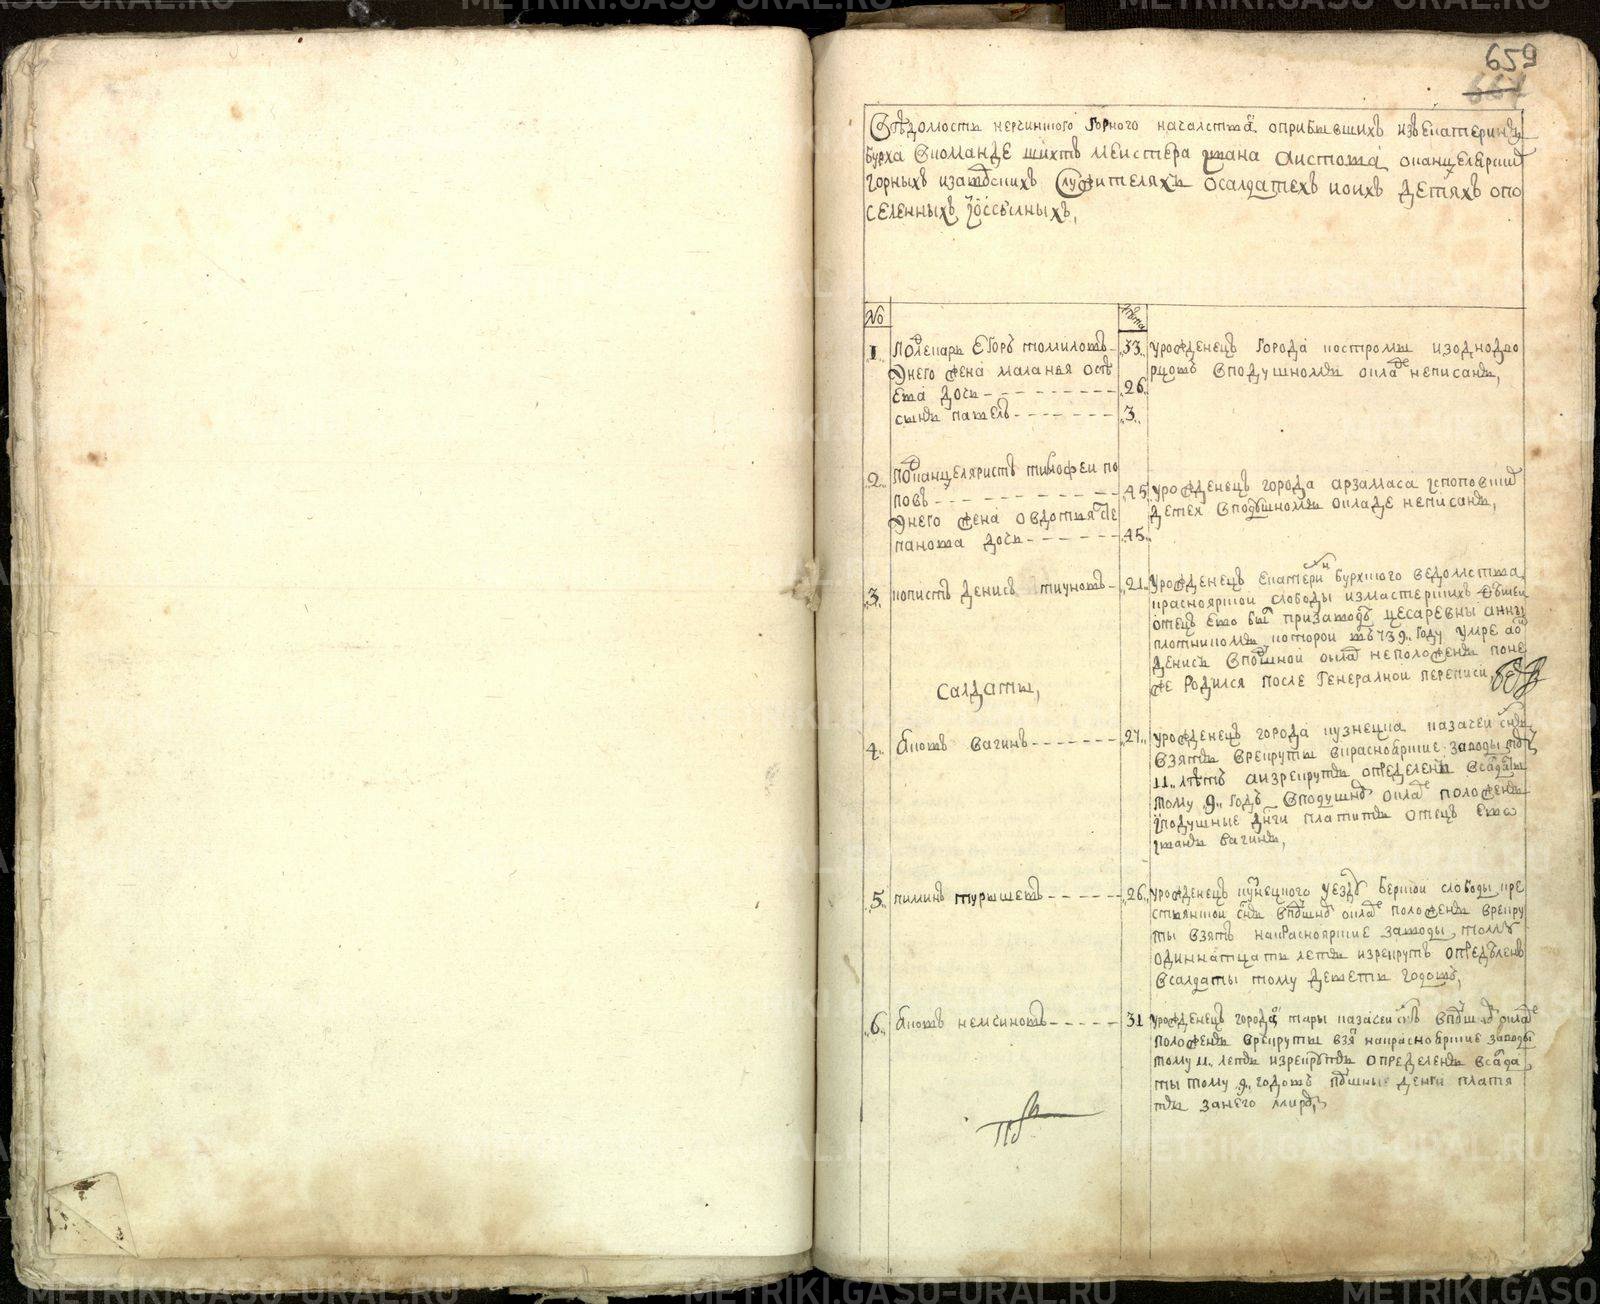 659
Ведомость нерчинского горного началства о прибывших из Екатерин
бурха в команде шихтъ меистера ивана аистова о канцелярских
горныхъ и заводскихъ служителяхъ о салдатехъ и о ихъ детяхъ о по
селенных и о ссылных,
№ лета
1 подлекарь Егоръ томиловъ 33 урожденецъ города костромы из однодво
у него жена маланья
рцовъ в подушномъ окладе не писанъ,
дочь 26
сынъ павелъ 3
2 подканцеляристъ тимофеи по
повъ 45 урожденецъ города арзамаса ис поповских
у него жена овдотья сте
детеи в подушномъ окладе не писанъ,
панова дочь 45
3 копеистъ денисъ тиуновъ 21 урожденецъ Екатеринбурхского ведомства
красноярскои слободы из мастерскихъ детеи
отецъ ево был при заводе цесаревны анны
плотникомъ которой в 739 году умре а он
денисъ в подушнои оклад не положенъ поне
же родился после генералнои переписи
Салдаты,
4 яковъ вагинъ 27 урожденецъ города кузнецка казачеи сынъ
взятъ в рекруты в красноярские заводы тому
11 летъ а из рекрутъ определенъ в салдаты
тому 9 годъ в подушной оклад положенъ
и подушные денги платитъ отецъ ево
иванъ вагинъ,
5 пиминъ турышевъ 26 урожденецъ кузнецкого уезду бергскои слободы кре
стьянскои сынъ в подушной оклад положенъ в рекру
ты взятъ на красноярские заводы тому
одиннатцать летъ из рекрутъ определенъ
в салдаты тому деветь годовъ,
6 яковъ немчиновъ 31 урожденецъ города тары казачеи сынъ в подушной окладе
положенъ в рекруты взят на красноярские заводы
тому 11 летъ из рекрутъ определенъ в салда
ты тому 9 годовъ подушные денги платя
тъ за него миромъ,